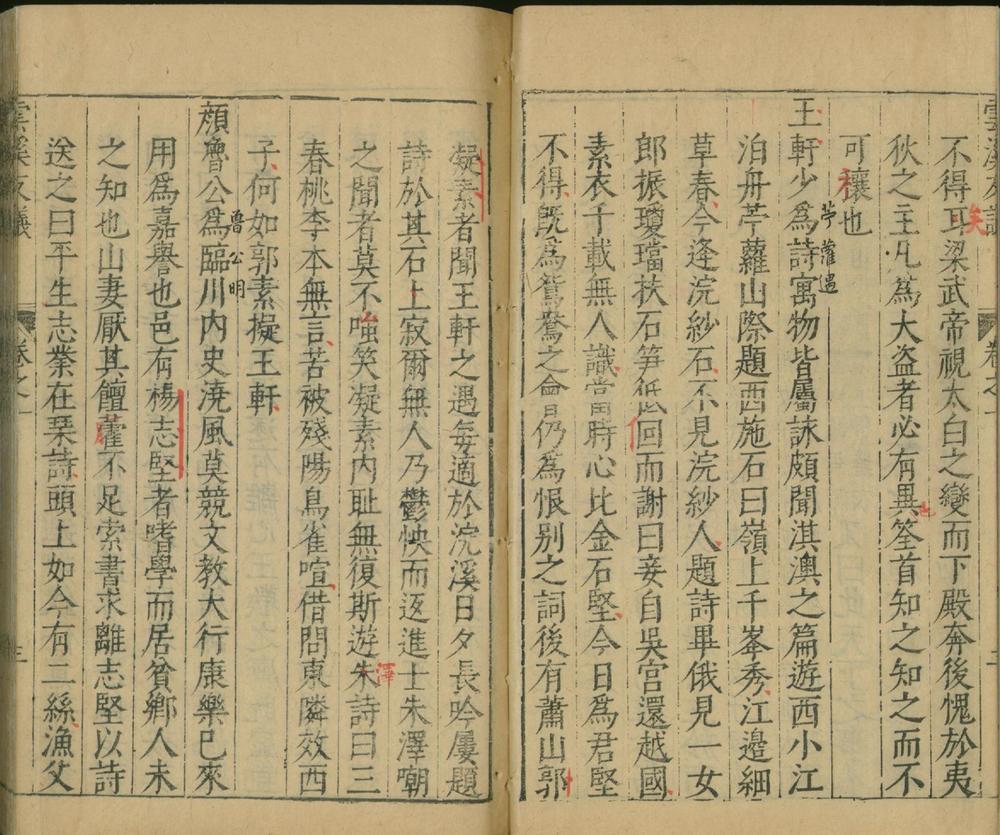 雲溪友議
卷之一
不得耳梁武帝視太白之變而下殿奔後愧於夷
矣
狄之主凡爲大盜者必有異筌首知之知之而不
也
可穰也
苧蘿遇
王軒少爲詩寓物皆屬詠頗聞淇澳之篇遊西小江
泊舟苧蘿山際題西施石曰嶺上千峯秀江邊細
草春今逢浣紗石不見浣紗人題詩畢俄見一女
郎振瓊璫扶石笋低回而謝曰妾自吳宮還越國
素衣千載無人識當時心比金石堅今日爲君堅
不得旣爲鴛鴦之會仍爲恨别之詞後有蕭山郭
凝素者聞王軒之遇每適於浣溪日夕長吟屢題
詩於其石上寂爾無人乃鬱怏而返進士朱澤嘲
之聞者莫不嗤笑凝素内耻無復斯遊朱詩曰三
澤
春桃李本無言苦被殘陽鳥雀喧借問東隣效西
子何如郭素擬王軒
魯公明
顔魯公爲臨川内史澆風莫競文教大行康樂已來
用爲嘉譽也邑有楊志堅者嗜學而居貧鄉人未
之知也山妻厭其饘藿不足索書求離志堅以詩
送之曰平生志業在琴詩頭上如今有二絲漁父
雲溪友議
卷之一